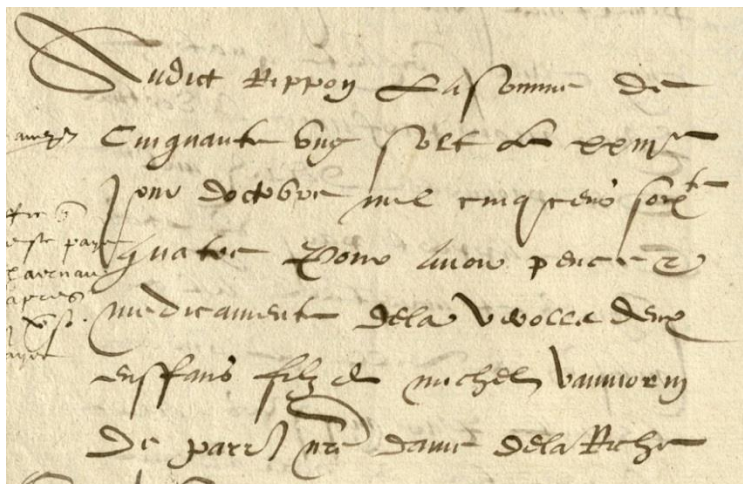 Audict Rippon La somme de
Cinquante ung solz Le xxiiije
jour doctobre mil cinq cens soixte
quatre Pour avoir pence et
medicamente dela verolle deux
enffans filz de michel vanmorin
De parr nre dame dela Riche